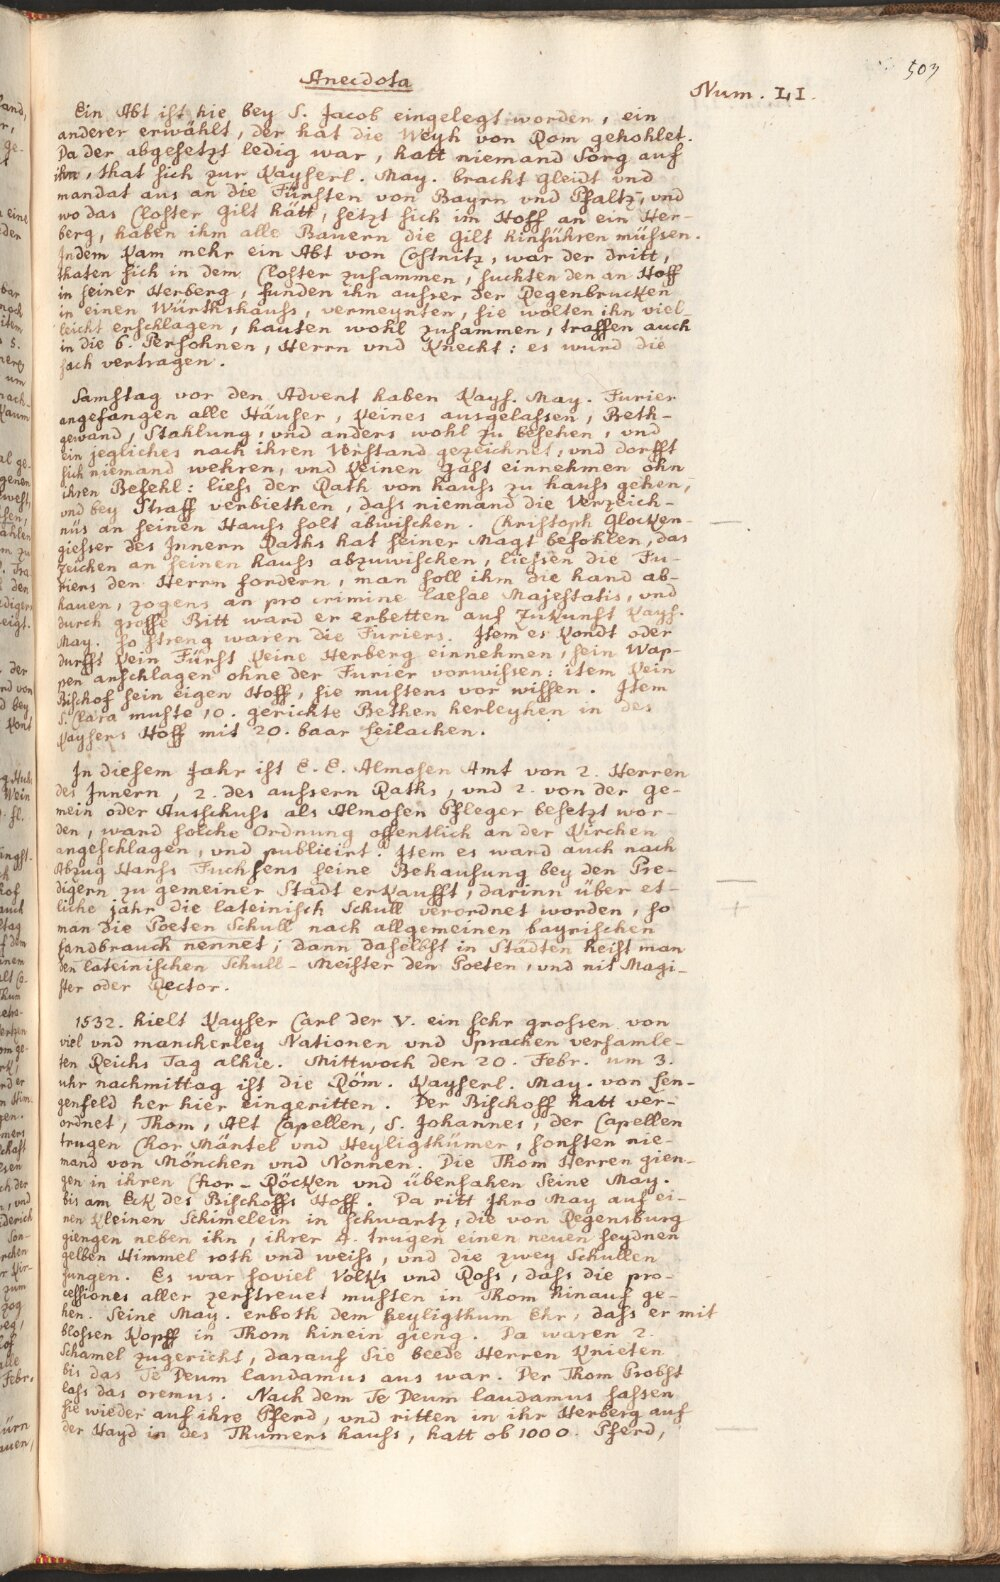 503
Anecdota
Num. LI.
Ein Abt ist hie bey S. Jacob eingelegt worden, ein
anderer erwählt, der hat die Weyh von Rom gehohlet.
Da der abgesetzt ledig war, hatt niemand Sorg auf
ihm, that sich zur Kayserl. May. bracht gleidt vnd
mandat aus an die Fürsten von Bayrn vnd Pfaltz, vnd
wo das Closter gilt hätt, setzt sich im Hoff an ein Her-
berg, haben ihm alle Bauern die gilt hinführen müssen.
Indem kam mehr ein Abt von Costnitz, war der dritt,
thaten sich in dem Closter zusammen, suchten den an Hoff
in seiner Herberg, funden ihn ausser der Regenbrucken
in einen Würthshauss, vermeynten, sie wolten ihn viel
leicht erschlagen, hauten wohl zusammen, traffen auch
in die 6. Persohnen, Herrn vnd Knecht: es wurd die
sach vertragen.
Samstag vor den Advent haben Kays. May. Furier
angefangen alle Häuser, keines ausgelassen, Beth-
gewand, Stahlung, vnd anders wohl zu besehen, vnd
ein jegliches nach ihren Verstand gezeichnet, vnd dorfft
sich niemand wehren, vnd keinen gast einnehmen ohn
ihren Befehl: liess der Rath von hauss zu hauss gehen,
vnd bey Straff verbiethen, dass niemand die Verzeich-
nüs an seinen Hauss solt abwischen. Christoph Glocken-
giesser des Innern Raths hat seiner Magt befohlen, das
zeichen an seinen hauss abzuwischen, liessen die Fu-
riers den Herrn fordern, man soll ihm die hand ab-
hauen, zogens an pro crimine laesae Majestatis, vnd
durch grosse Bitt ward er erbetten auf Zukunft Kays.
May. so streng waren die Furiers. Item es kondt oder
durfft kein Fürst keine Herberg einnehmen, sein Wap-
pen anschlagen ohne der Furier vorwissen: item kein
Bischof sein eigen Hoff, sie mustens vor wissen. Item
S. Clara muste 10. gerichte Bethen herleyhen in des
Kaysers Hoff mit 20. baar Leilachen.
In diesem Jahr ist E. E. Almosen Amt von 2. Herren
des Innern, 2. des aussern Raths, vnd 2. von der ge-
mein oder Ausschuss als Almosen Pfleger besetzt wor-
den, ward solche Ordnung offentlich an der Kirchen
angeschlagen, vnd publicirt. Item es ward auch nach
Abzug Hanss Fuchsens seine Behausung bey den Pre-
digern zu gemeiner Stadt erkaufft, darinn über et-
liche jahr die lateinisch Schull verordnet worden, so
man die Poeten Schull nach allgemeinen bayrischen
Landbrauch nennet; dann daselbst in Städten heist man
den lateinischen Schull-Meister den Poeten, vnd nit Magi-
ster oder Rector.
1532. hielt Kayser Carl der V. ein sehr grossen von
viel vnd mancherley Nationen vnd Sprachen versamle-
ten Reichs Tag alhie. Mittwoch den 20. Febr. um 3.
uhr nachmittag ist die Röm. Kayserl. May. von Len-
genfeld her hier eingeritten. Der Bischoff hatt ver-
ordnet, Thom, Alt Capellen, S. Johannes, der Capellen
trugen Chor Mäntel vnd Heyligthümer, sonsten nie-
mand von Mönchen vnd Nonnen. Die Thom Herren gien-
gen in ihren Chor-Röcken vnd übersahen Seine May.
bis am Eck des Bischoffs Hoff. Da ritt Ihro May auf ei-
nen kleinen Schimelein in schwartz, die von Regensburg
giengen neben ihn, ihrer 4. trugen einen neuen seydnen
gelben Himmel roth vnd weiss, vnd die zwey Schullen
sungen. Es war soviel Volks vnd Ross, dass die pro-
cessiones aller zerstreuet musten in Thom hinauf ge-
hen. Seine May. erboth dem heyligthum Ehr, dass er mit
blossen Kopff in Thom hinein gieng. Da waren 2.
Schamel zugericht, darauf Sie beede Herren knieten
bis das Te Deum laudamus aus war. Der Thom Probst
lass das oremus. Nach dem Te Deum laudamus sassen
sie wieder auf ihre Pferd, vnd ritten in ihr Herberg auf
der Hayd in des Thumers hauss, hatt ob 1000. Pferd,